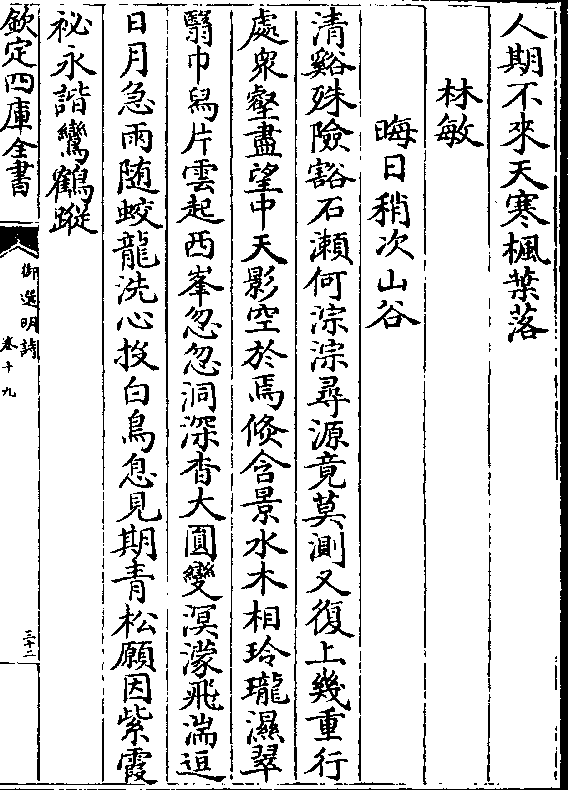 人期不來天寒楓葉落
林敏
晦日稍次山谷
清谿殊險豁石瀨何淙淙尋源竟莫測又復上幾重行
處衆壑盡望中天影空於焉倏含景水木相玲瓏濕翠
翳巾舄片雲起西峯忽忽洞深杳大圓變溟濛飛湍逗
日月急雨随蛟龍洗心投白鳥息見期青松願因紫霞
祕永諧鸞鶴蹤
欽定四庫全書
御選明詩
卷十九
三十二